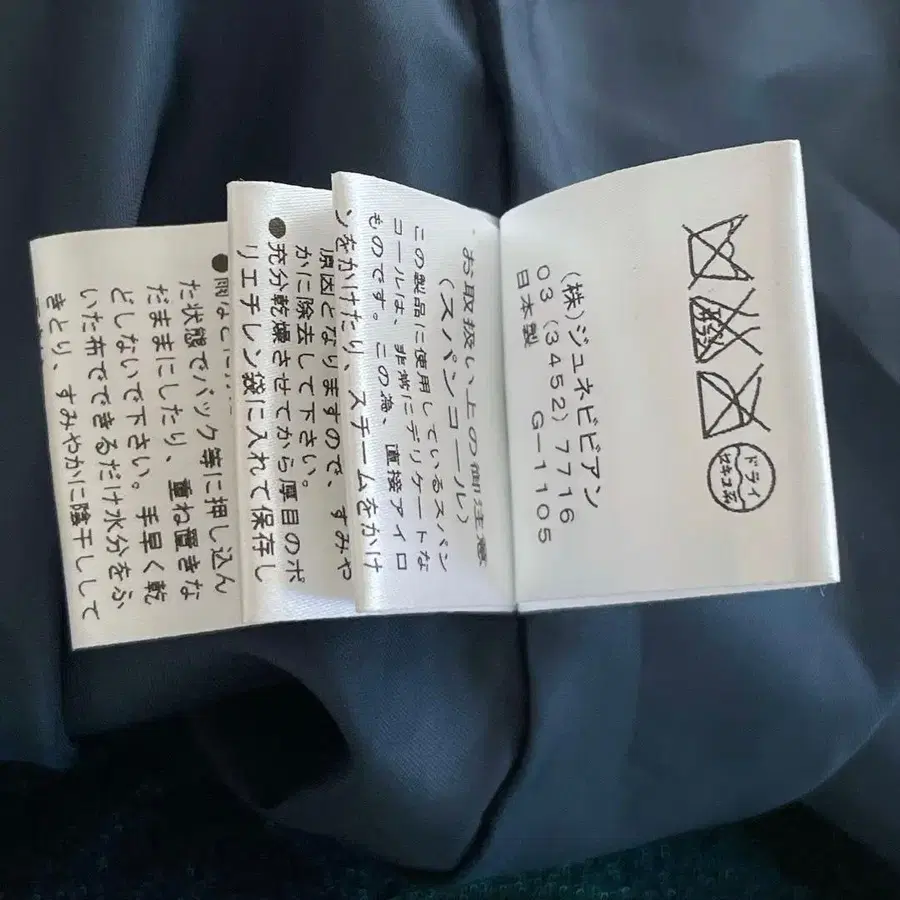 ドライ
セキユ系
(株)ジュネビビアン
03(3452)7716
G-1105
日本製
お取扱い上の御注意
(スパンコール)
この製品に使用しているスパン
コールは、非常にデリケートな
ものです。この為、直接アイロ
ンをかけたり、スチームをかけ
原因となりますので、すみや
かに除去して下さい。
●充分乾燥させてから厚目のポ
リエチレン袋に入れて保存し
た状態でバック等に押し込ん
だままにしたり、重ね置きな
どしないで下さい。手早く乾
いた布でできるだけ水分をふ
きとり、すみやかに陰干しして